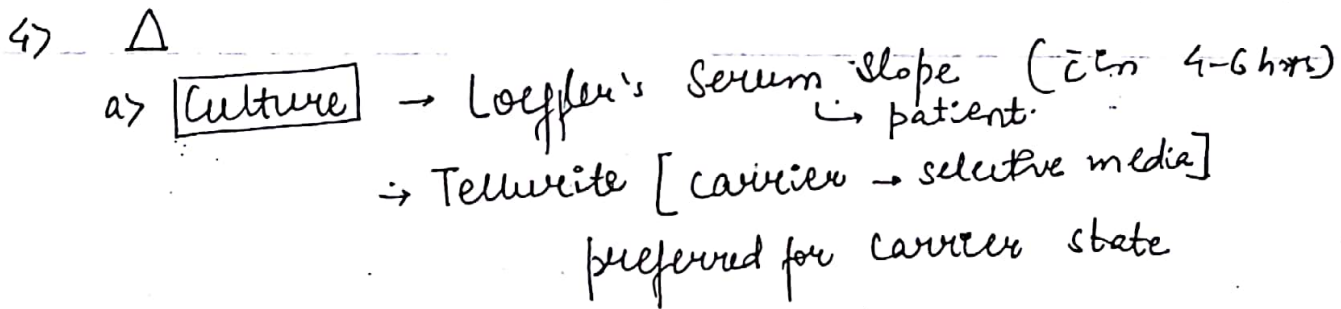 4> Δ
a> Culture → Loeffler's Serum Slope (c̄in 4-6 hrs)
↳ patient.
→ Tellurite [carrier → selective media]
preferred for carrier state